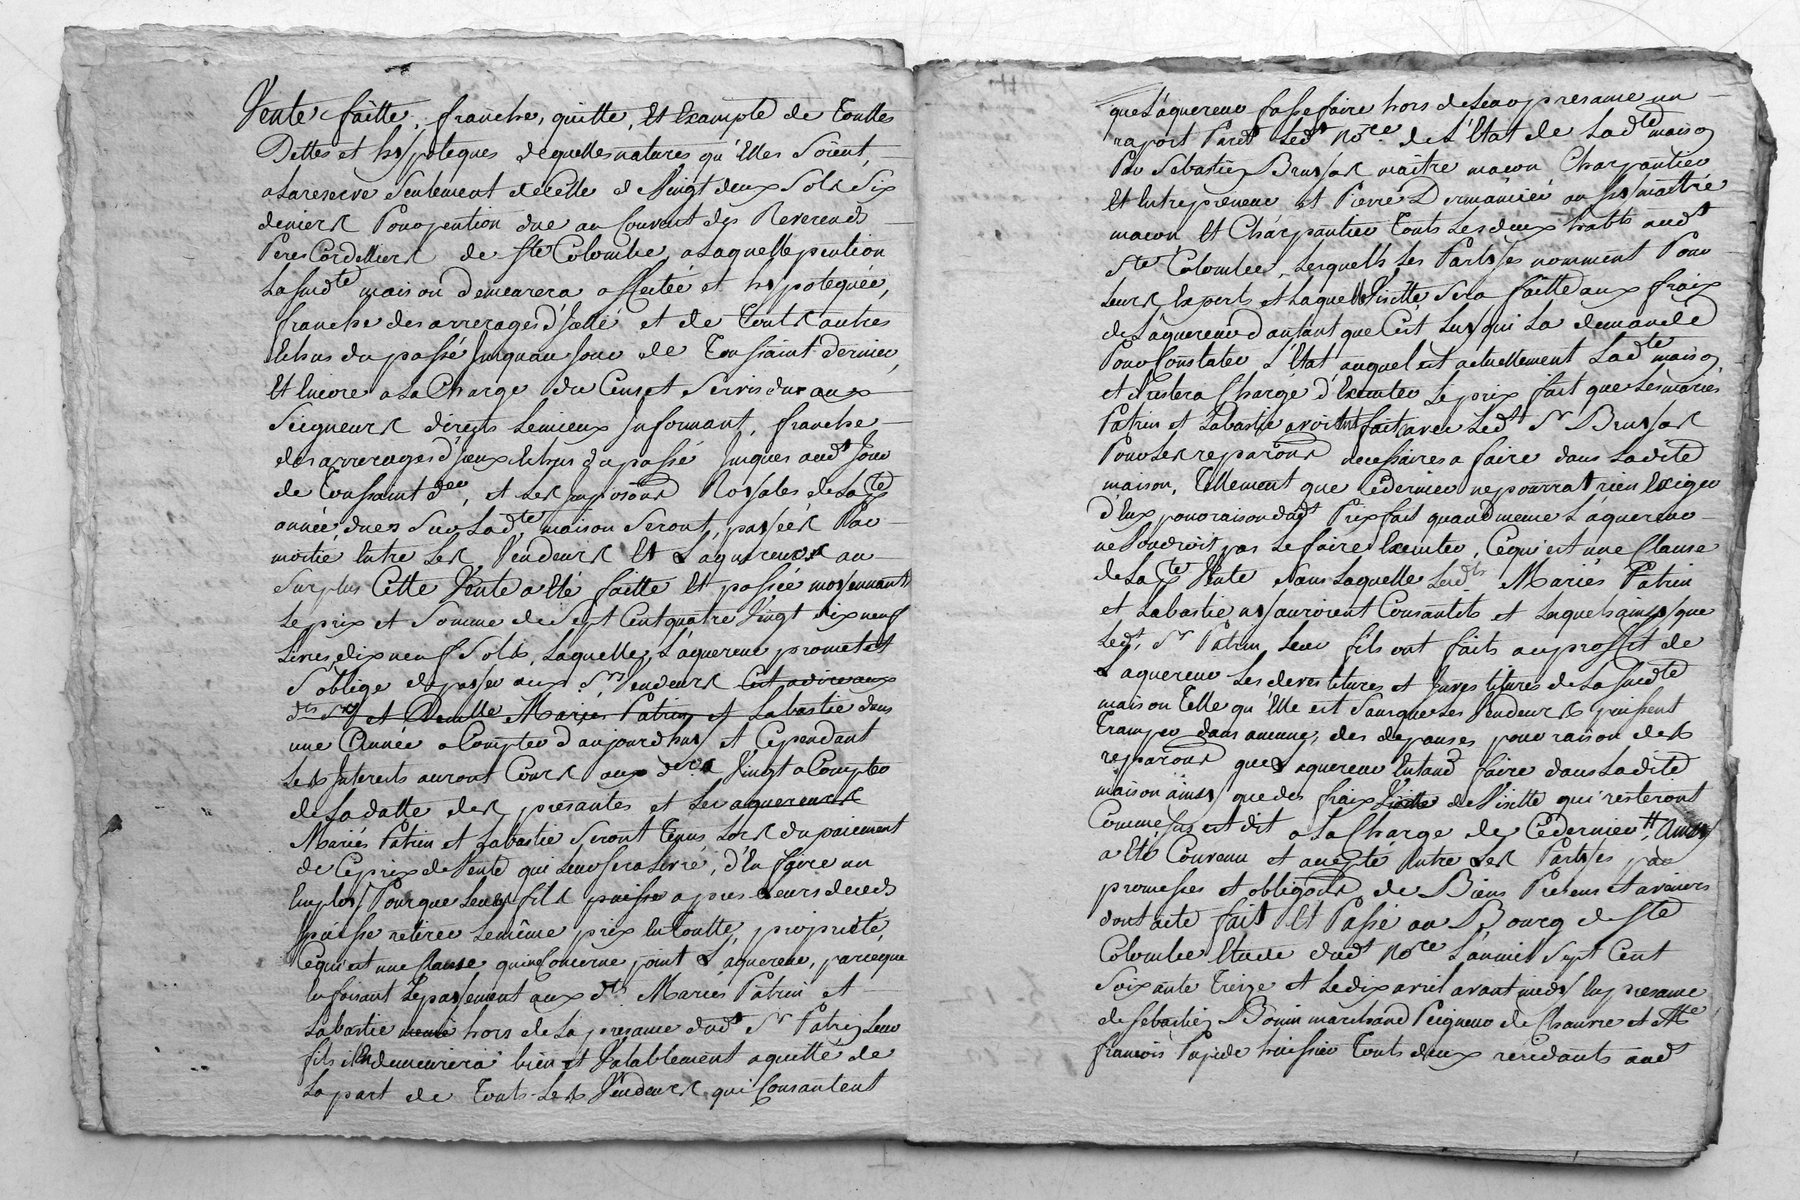 Vente faitte, franche, quitte, Et Exampte de Touttes
Dettes et hypoteques dequellesnatures qu'Elles Soient,
alareserve Seulement decelle de Vingt deux Sols Six
deniers Pour pention due au Couvent des Reverends
Peres Cordelliers de Ste Colombe, a Laquelle pention
La susdte maison demeurera affectée et hypotequée,
franche des arrerages d'Jcelle et de Touts autres
Echus du passé Jusquau Jour de Toussaint dernier,
Et Encore a La Charge du Cens et Servis dus aux
Seigneurs directs Lemieux Jnformant, franche
des arrerages d'Jceux Echus du passé Jusques audt Jour
de Toussaint der, et Les Jmpôsons Royales de La pte
année, dues Sur Ladte maison Seront, payéés Par
moitié Entre Les Vendeurs Et L'aquereur au
Surplus Cette Vente a Eté faitte Et passée moyennant
Le prix et Somme de Sept Cent quatre Vingt dix neuf
Livres, dix neuf Sols, Laquelle, L'aquereur promet et
S'oblige de payer aux Srs Vendeurs Cest a dire aux
dts Sr et Delle Mariés Patrin et Labastie dans
une Année a Compter d'aujourdhuy et Cependant
Les Jnterets auront Cours au der Vingt a Compter
de La datte des presantes et Les aquereurs
Mariés Patrin et Labastie Seront Tenus Lors du paiement
de Ceprix de Vente qui Leur sera Livré, d'En faire un
Employ Pour que Leurs fils puisse apres Leurs deceds
puisse retirer Lemême prix En Toutte, proprieté,
Cequi est une Clause qui ne Concerne point L'aquereur, parceque
En faisant Lepayement aux dts Mariés Patrin et
Labastie meme hors de La presance dudt Sr Patrin Leur
fils Il En demeurera bien et Valablement aquitté de
La part de Touts Les Vendeurs qui Consantent
que L'aquereur fasse faire hors de Leur presance un
raport Pardt Ledt Nore de L'Etat de Ladte maison
Par Sebastien Bruyas maitre maçon Charpantier
Et Entrepreneur et Pierre Dermancier aussy maitre
maçon Et Charpantier Touts Les deux habts audt
Ste Colombe, Lesquells Les Partyes nomment Pour
Leurs Experts et Laquelle Visitte Sera faitte aux fraix
de L'aquereur d'autant que C'est Luy qui La demande
Pour Constater L'Etat auquel est actuellement Ladte maison
et Il restera Chargé d'Executer Le prix fait que Les mariés
Patrin et Labastie avoient fait avec Ledt Sr Bruyas
Pour Les reparôns necessaires a faire dans Ladite
maison, Tellement que Cedernier ne pourra rien Exiger
d'Eux pour raison dudt Prix fait quand meme L'aquereur
ne Voudroit pas Le faire Executer, Cequi est une Clause
de La pte Vente Sans Laquelle Lesdts Mariés Patrin
et Labastie n'y auroient Consantits et Laquelle ainsy que
Ledt Sr Patrin Leur fils ont faits auproffit de
L'aquereur Les devestitures et Jnvestitures de La Susdte
maison Telle qu'Elle est Sans que Les Vendeurs puissent
Tramper dans aucunes des depances pour raison des
reparôns que L'aquereur Entand faire dans Ladite
maison ainsy que des fraix Visitte de Visitte qui resteront
Comme Jl est dit a La Charge de Cedernier # Ainsy
a Eté Convenu et accepté Entre Les Partyes par
promesses et obligôns de Biens Presens et avenirs
dont acte fait Et Passé au Bourg de Ste
Colombe Etude dudt Nore L'an mil Sept Cent
Soixante Treize et Ledix avril avant midy En presance
de Sebastien Bonin marchand Peigneur de Chanvre et Me
francois Pajede huissier Touts deux residants audt